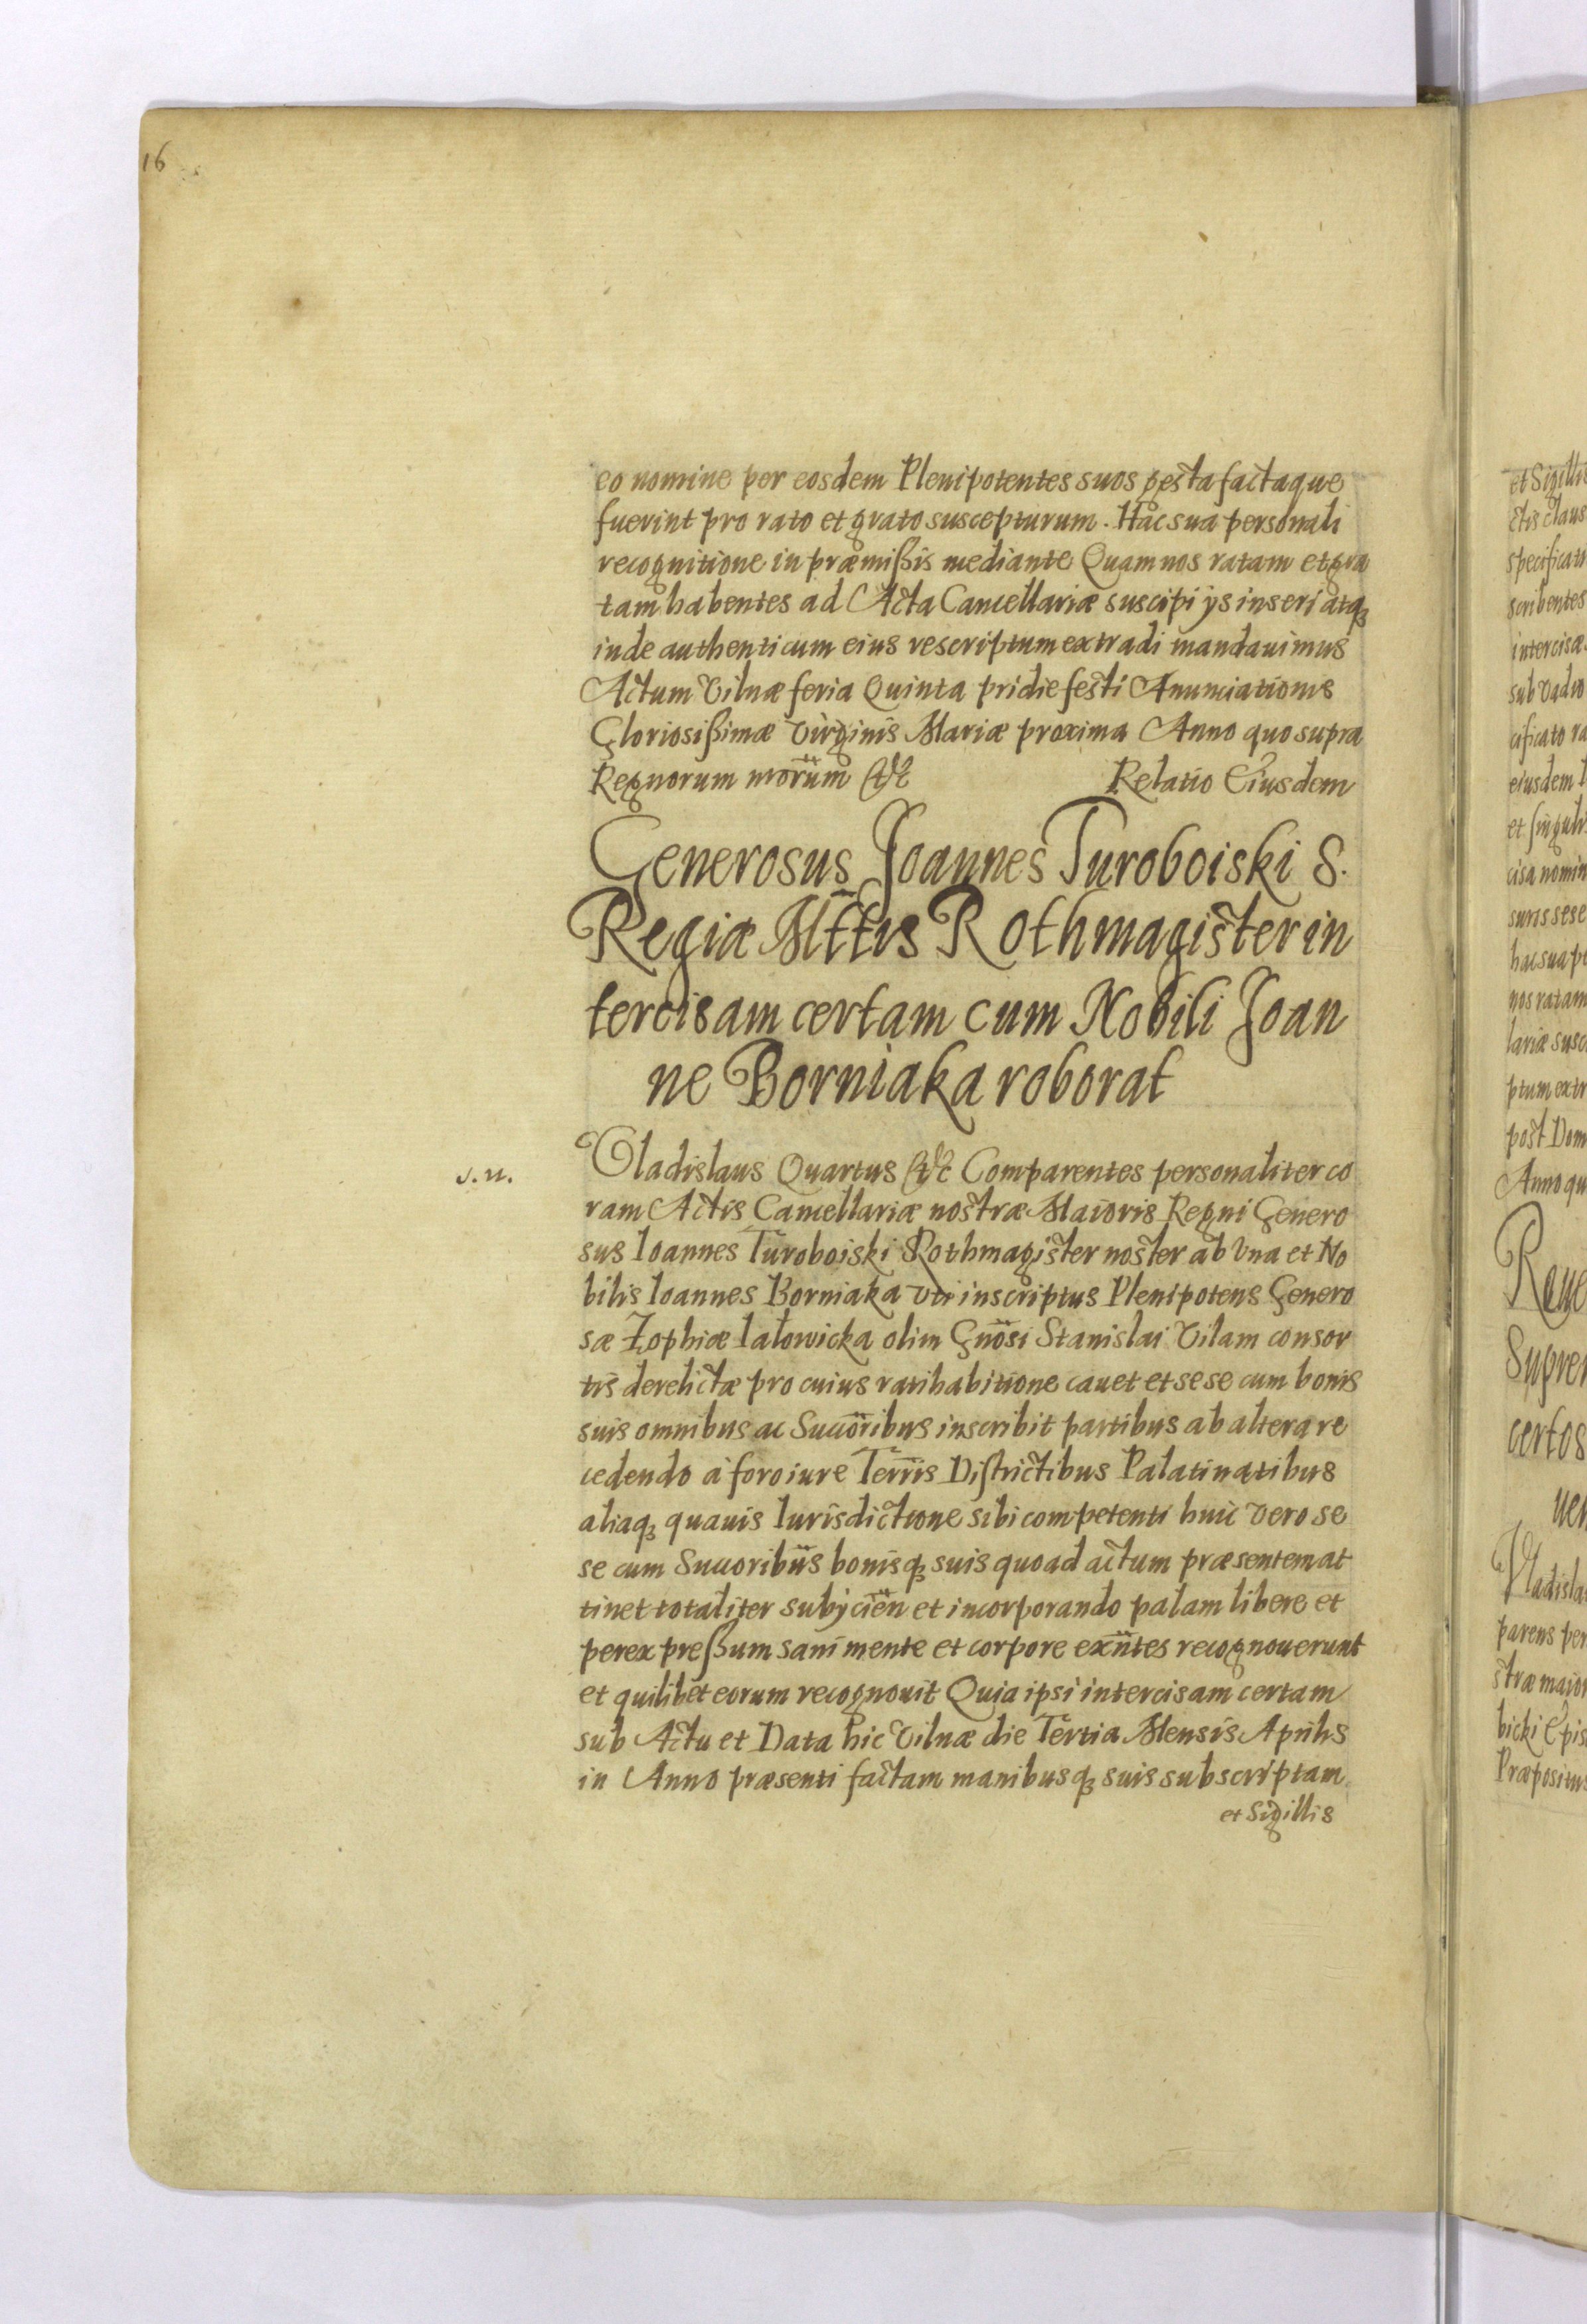 16
eo nomine per eosdem Plenipotentes suos gesta factaque
fuerint pro rato et grato suscepturum. Hac sua personali
recognitione in præmißis mediante Quam nos ratam et gra
tam habentes ad Acta Cancellariæ suscipi ijs inseri atq3
inde authenticum eius rescriptum extradi mandauimus
Actum Vilnæ feria Quinta pridie festi Anunciationis
Gloriosißimæ Virginis Mariæ proxima Anno quo supra
Regnorum nrorum &c Relatio Eiusdem
Generosus Joannes Turoboiski S.
Regiæ Mttis Rothmagister in
tercisam certam cum Nobili Joan
ne Borniaka roborat
Vladislaus Quartus &c Comparentes personaliter co
J. II.
ram Actis Cancellariæ nostræ Maioris Regni Genero
sus Ioannes Turoboiski Rothmagister noster ab Vna et No
bilis Ioannes Borniaka vti inscriptus Plenipotens Genero
sæ Zophiæ Iałowicka olim Gnosi Stanislai Vilam consor
tis derelictæ pro cuius ratihabitione cauet et sese cum bonis
suis omnibus ac Succoribus inscribit partibus ab altera re
cedendo à foro iure Terris Districtibus Palatinatibus
aliaq3 quauis Iurisdictione sibi competenti huic vero se
se cum Succoribus bonisq3 suis quoad actum præsentem at
tinet totaliter subijcien et incorporando palam libere et
per expreßum sani mente et corpore exntes recognouerunt
et quilibet eorum recognouit Quia ipsi intercisam certam
sub Actu et Data hic Vilnæ die Tertia Mensis Aprilis
in Anno præsenti factam manibusq3 suis subscriptam
et Sigillis